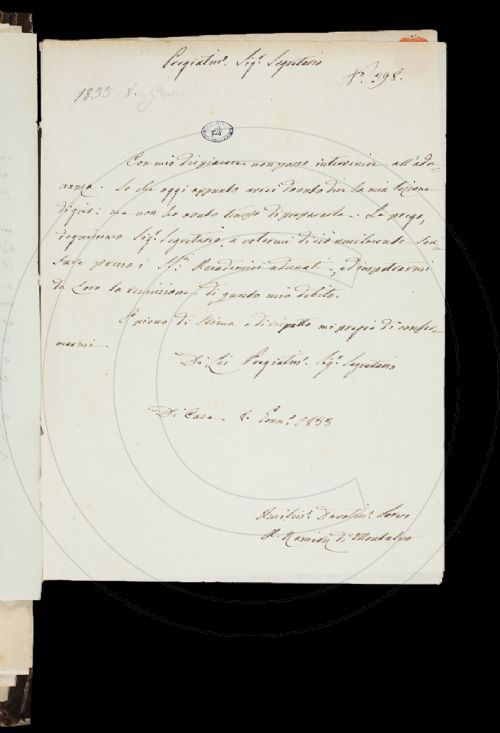 Pregiatis.º Sig.r Segretario
N.º 398.
1833. 8. Genn
Con mio dispiacere non posso intervenire all'adu-
nanza. So che oggi appunto avrei dovuto dire la mia lezione
di giro: ma non ho avuto tempo di prepararla. La prego,
Sig.r Segretario, a volermi di ciò umilmente scu-
sare presso i Sig.ri Accademici adunati, ed impetrarmi
da Loro la remissione di questo mio debito.
E pieno di stima, e di rispetto mi pregio di confer-
marmi
Di Lei Pregiatis.º Sig.r Segretario
Di Casa 8. Genn.º 1833
Umilis.º Devotis.º Servo
A. Ramirez di Montalvo